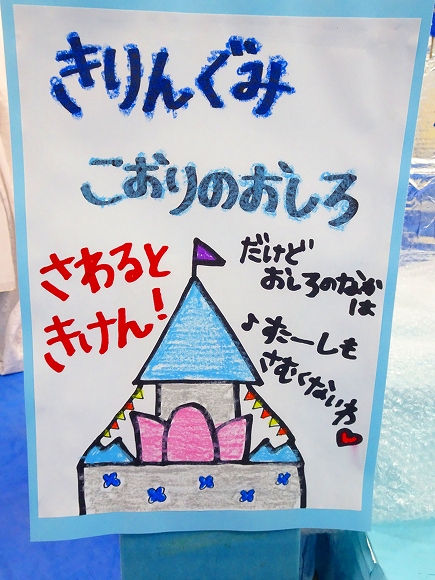 きりんぐみ
こおりのおしろ
さわると
きけん！
だけど
おしろのなか
は
♪たーしも
さむくないわ